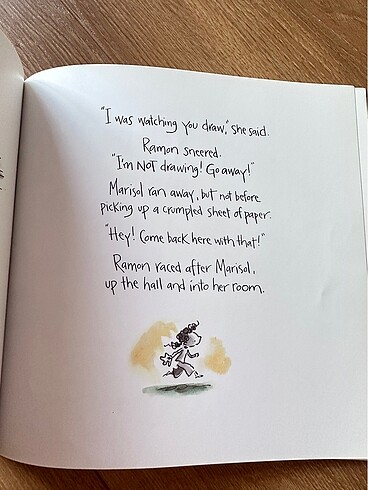 "I was watching you draw," she said.
Ramon sneered.
"I'm NOT drawing! Go away!"
Marisol ran away, but not before
picking up a crumpled sheet of paper.
"Hey! Come back here with that!"
Ramon raced after Marisol,
up the hall and into her room.